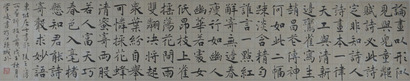 論畫以形似
見與兒童鄰
賦詩必此詩
定非知詩人
詩畫本一律
天工與清新
邊鸞雀寫生
趙昌花傳神
何如此二幅
疎淡含精勻
誰言一點紅
解寄無邊春
瘦竹如幽人
幽花如處女
低昂枝上雀
搖蕩花間雨
雙翎決將起
眾葉紛自舉
可憐採花蜂
清蜜寄兩股
若人富天巧
春色入毫楮
懸知君能詩
寄聲求妙語